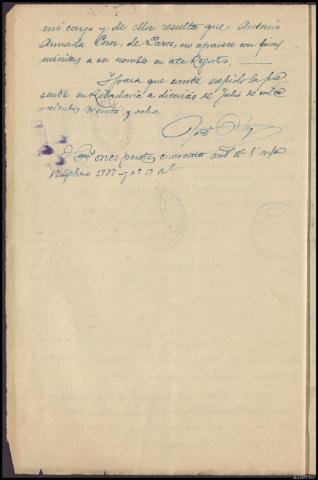 mi cargo y de ellos resulta que Antonio
Armada Perez, de Pazos, no aparece con fincas
inscritas a su nombre en este Registro.
Y para que conste expido la pre
sente en Ribadavia a dieciseis de Julio de mil no
vecientos treinta y ocho.
once pesetas cuarenta
1937 - y nº 19 del